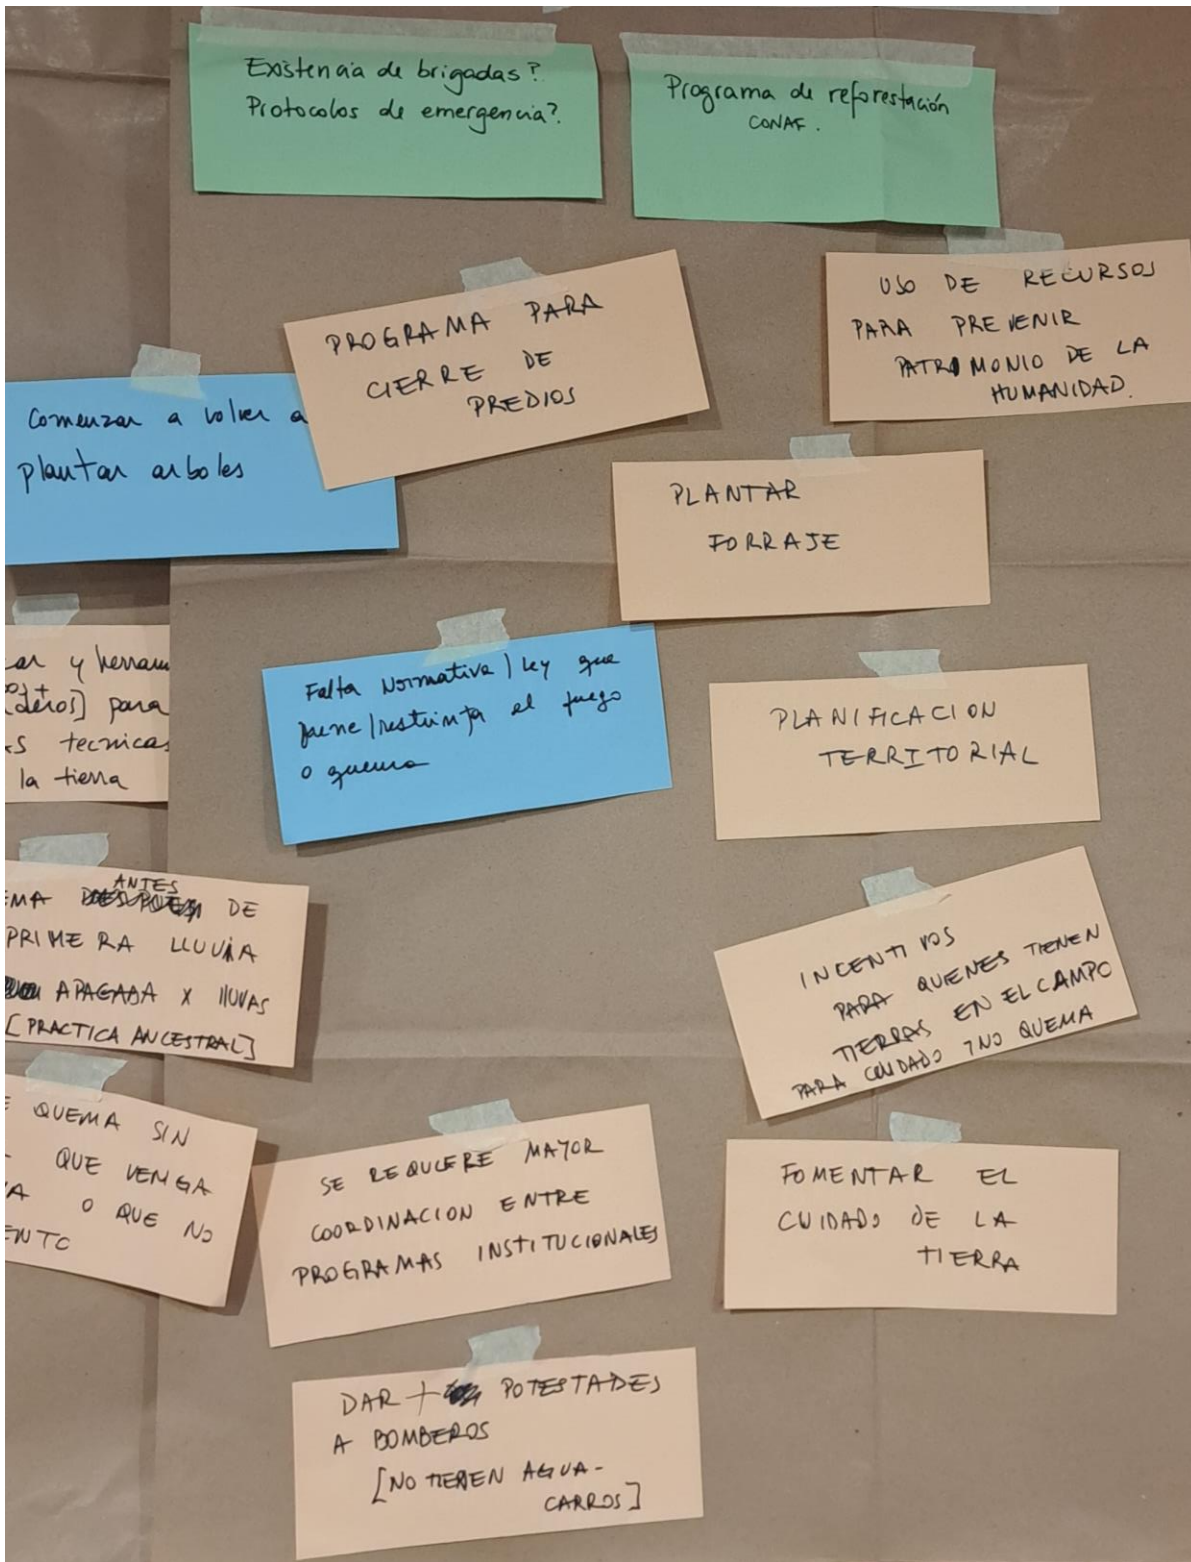 Existencia de brigadas?
Protocolos de emergencia?
Programa de reforestación
CONAF.
PROGRAMA PARA
CIERRE DE
PREDIOS
USO DE RECURSOS
PARA PREVENIR
PATRIMONIO DE LA
HUMANIDAD.
Comenzar a volver a
plantar arboles
PLANTAR
FORRAJE
ar y herram
para
s tecnicas
la tierra
Falta Normativa / Ley que
pene / restrinja el fuego
o quema
PLANIFICACION
TERRITORIAL
EMA ANTES DE
PRIMERA LLUVIA
APAGADA X lluvas
[PRACTICA ANCESTRAL]
INCENTIVOS
PARA QUIENES TIENEN
TIERRAS EN EL CAMPO
PARA CUIDADO Y NO QUEMA
E QUEMA SIN
QUE VENGA
A O QUE NO
ENTO
SE REQUIERE MAYOR
COORDINACION ENTRE
PROGRAMAS INSTITUCIONALES
FOMENTAR EL
CUIDADO DE LA
TIERRA
DAR + POTESTADES
A BOMBEROS
[NO TIENEN AGUA-
CARROS]